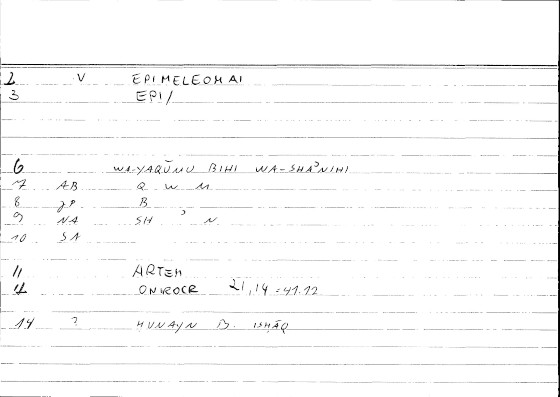 2 V EPIMELEOMAI
3 EPI/
6 WA-YAQŪMU BIHI WA-SHAʾNIHI
7 AB Q W M
8 JP B
9 NA SH ʾ N
10 SA
11 ARTEM
12 ONIROCR 21,14 = 41.12
14 ? HUNAYN B. ISḤĀQ